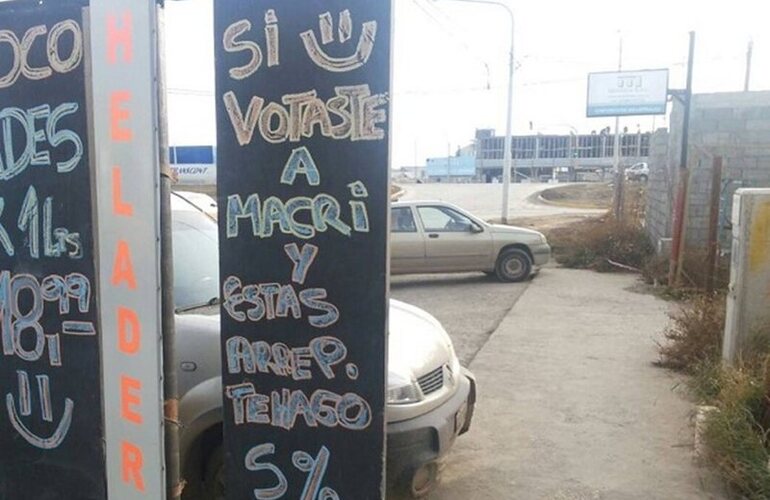 OCO
ADES
X 1 Lts
18,99
HELADER
SI
VOTASTE
A
MACRÍ
Y
ESTAS
ARREP.
TEHAGO
5%